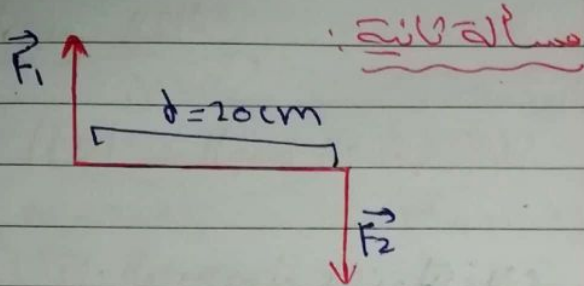 مسألة ثانية :
F₁
d = 20 cm
F₂